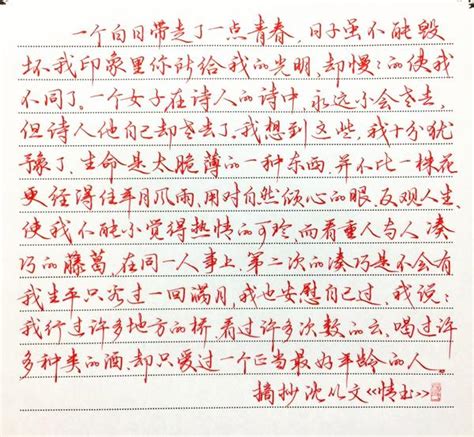 一个白日带走了一点青春,日子虽不能毁
坏我印象里你所给我的光明,却慢:的使我
不同了。一个女子在诗人的诗中,永远不会老去,
但诗人他自己却老去了。我想到这些,我十分犹
豫了。生命是太脆薄的一种东西,并不比一株花
更经得住年月风雨,用对自然倾心的眼,反观人生,
使我不能不觉得热情的可珍,而看重人与人凑
巧的藤葛。在同一人事上,第二次的凑巧是不会有
我生平只看过一回满月,我也安慰自己过,我说:
我行过许多地方的桥,看过许多次数的云,喝过许
多种类的酒,却只爱过一个正当最好年龄的人。
摘抄沈从文《情书》